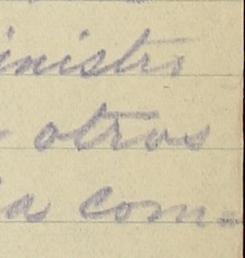 inistro
otros
ia com-